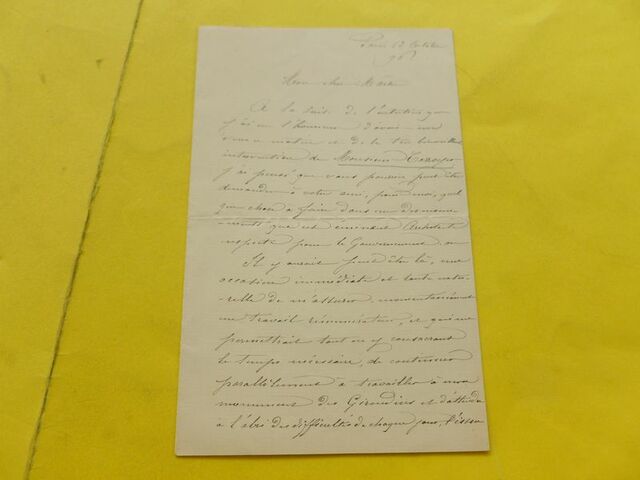 Paris 13 Octobre
96
Mon cher Maître
A la suite de l'entretien que
j'ai eu l'honneur d'avoir
matin et de la très bienveillante
intervention de Monsieur
j'ai pensé que vous pourriez peut être
demander à votre ami, pour moi, quel
que chose à faire dans
ments que cet éminent Architecte
pour le Gouvernement
Il y aurait peut être là, une
occasion immédiate et toute natu-
relle de m'assurer momentanément
un travail rémunérateur, et qui me
permettrait tout en y consacrant
le temps nécessaire, de continuer
parallèlement à travailler à mon
monument des Girondins et d'attendre
à l'abri des difficultés de chaque jour, l'issue